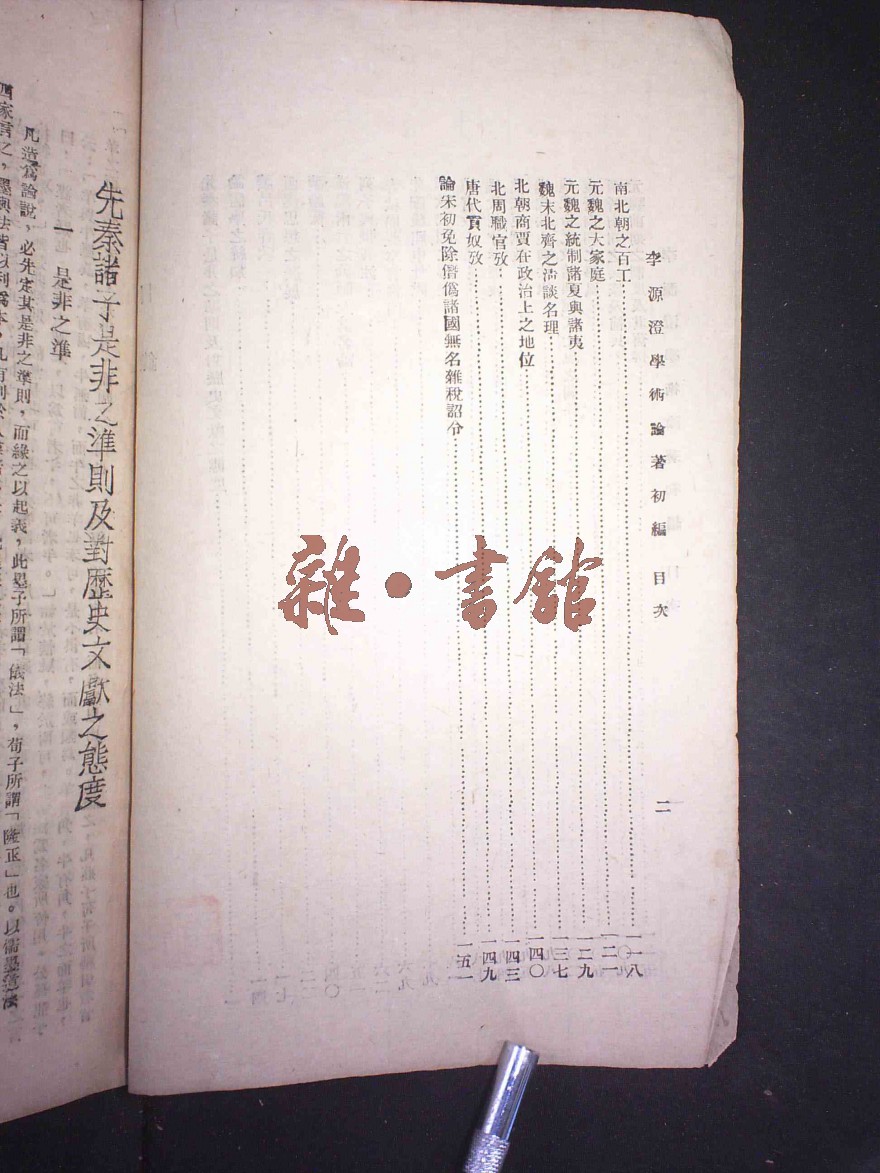 李源澄學術論著初編 目次
二
南北朝之百工……一一八
元魏之大家庭……一二一
元魏之統制諸夏與諸夷……一二九
魏末北齊之清談名理……一三七
北朝商賈在政治上之地位……一四〇
北周職官攷……一四三
唐代貢奴攷……一四九
論宋初免除僭僞諸國無名雜稅詔分……一五一
雜·書館
先秦諸子是非之準則及對歷史文獻之態度
一 是非之準
凡造爲論說，必先定其是非之準則，而緣之以起義，此墨子所謂「儀法」，荀子所謂「隆正」也。以儒墨道法
四家言之，墨與法皆以利爲本，凡有利於